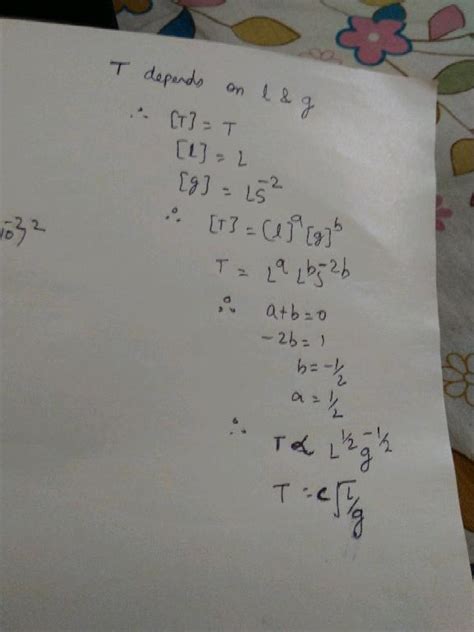 T depends on l & g
∴ [T] = T
[l] = L
[g] = LS⁻²
∴ [T] = [l]ᵃ [g]ᵇ
T = Lᵃ LᵇS⁻²ᵇ
∴ a+b=0
-2b=1
b=-1/2
a=1/2
∴ T ∝ L^1/2 g^-1/2
T = c√L/g